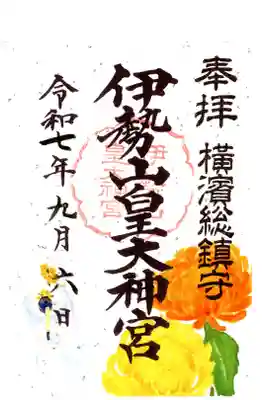 奉拝 横濱総鎮守
伊勢山皇大神宮
令和七年九月六日